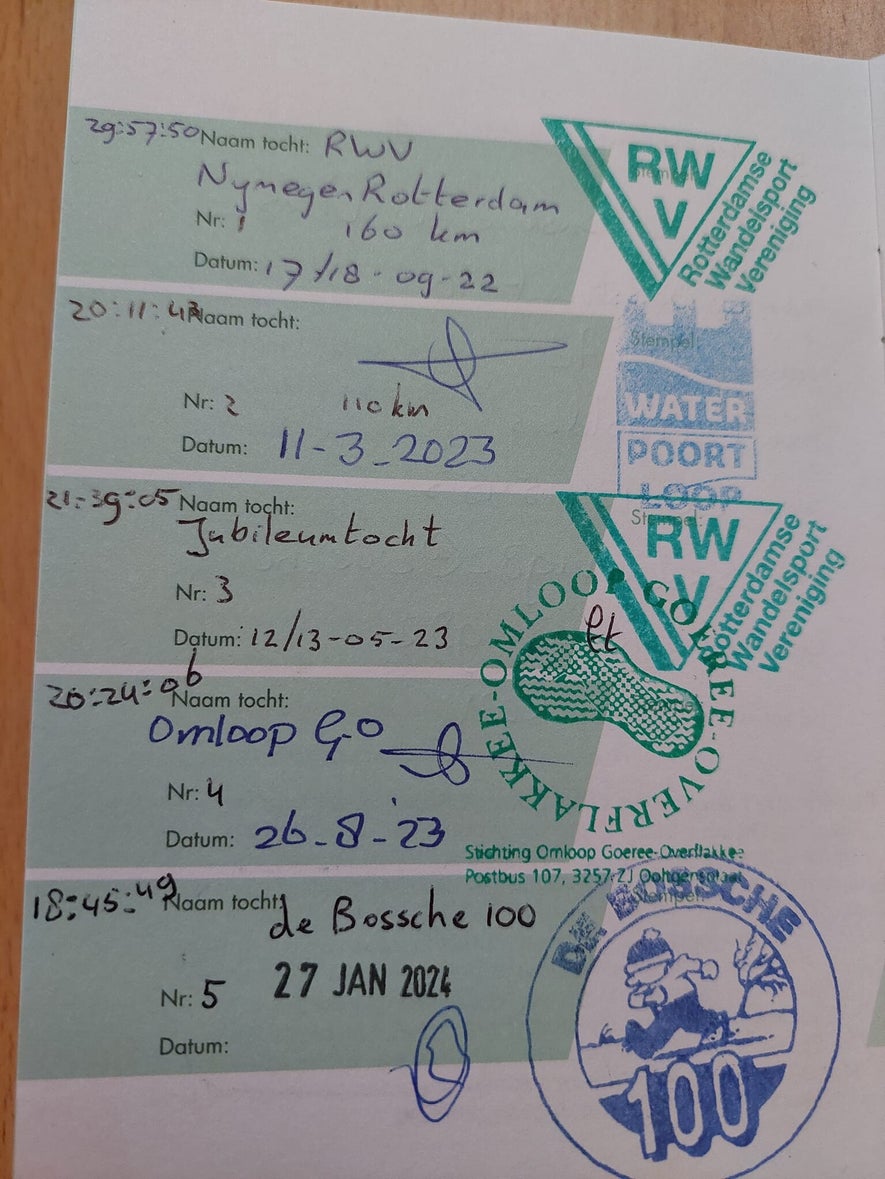 29:57:50 Naam tocht: RWV
Nymegen Rotterdam
Nr: 1 160 km
Datum: 17/18-09-22
RW
V
Rotterdamse
Wandelsport
Vereniging
20:11:43 Naam tocht:
Stempel:
Nr: 2 110 km
Datum: 11-3-2023
WATER
POORT
LOOP
21:39:05 Naam tocht:
Stempel:
Jubileumtocht
Nr: 3
Datum: 12/13-05-23
RW
V
Rotterdamse
Wandelsport
Vereniging
20:24:06 Naam tocht:
Omloop GO
Nr: 4
Datum: 26-8-'23
OMLOOP GOEREE-OVERFLAKKEE
Stichting Omloop Goeree-Overflakkee
Postbus 107, 3257 ZJ Ooltgensplaat
18:45:49 Naam tocht:
Stempel:
de Bossche 100
Nr: 5 27 JAN 2024
Datum:
DE BOSSCHE
100